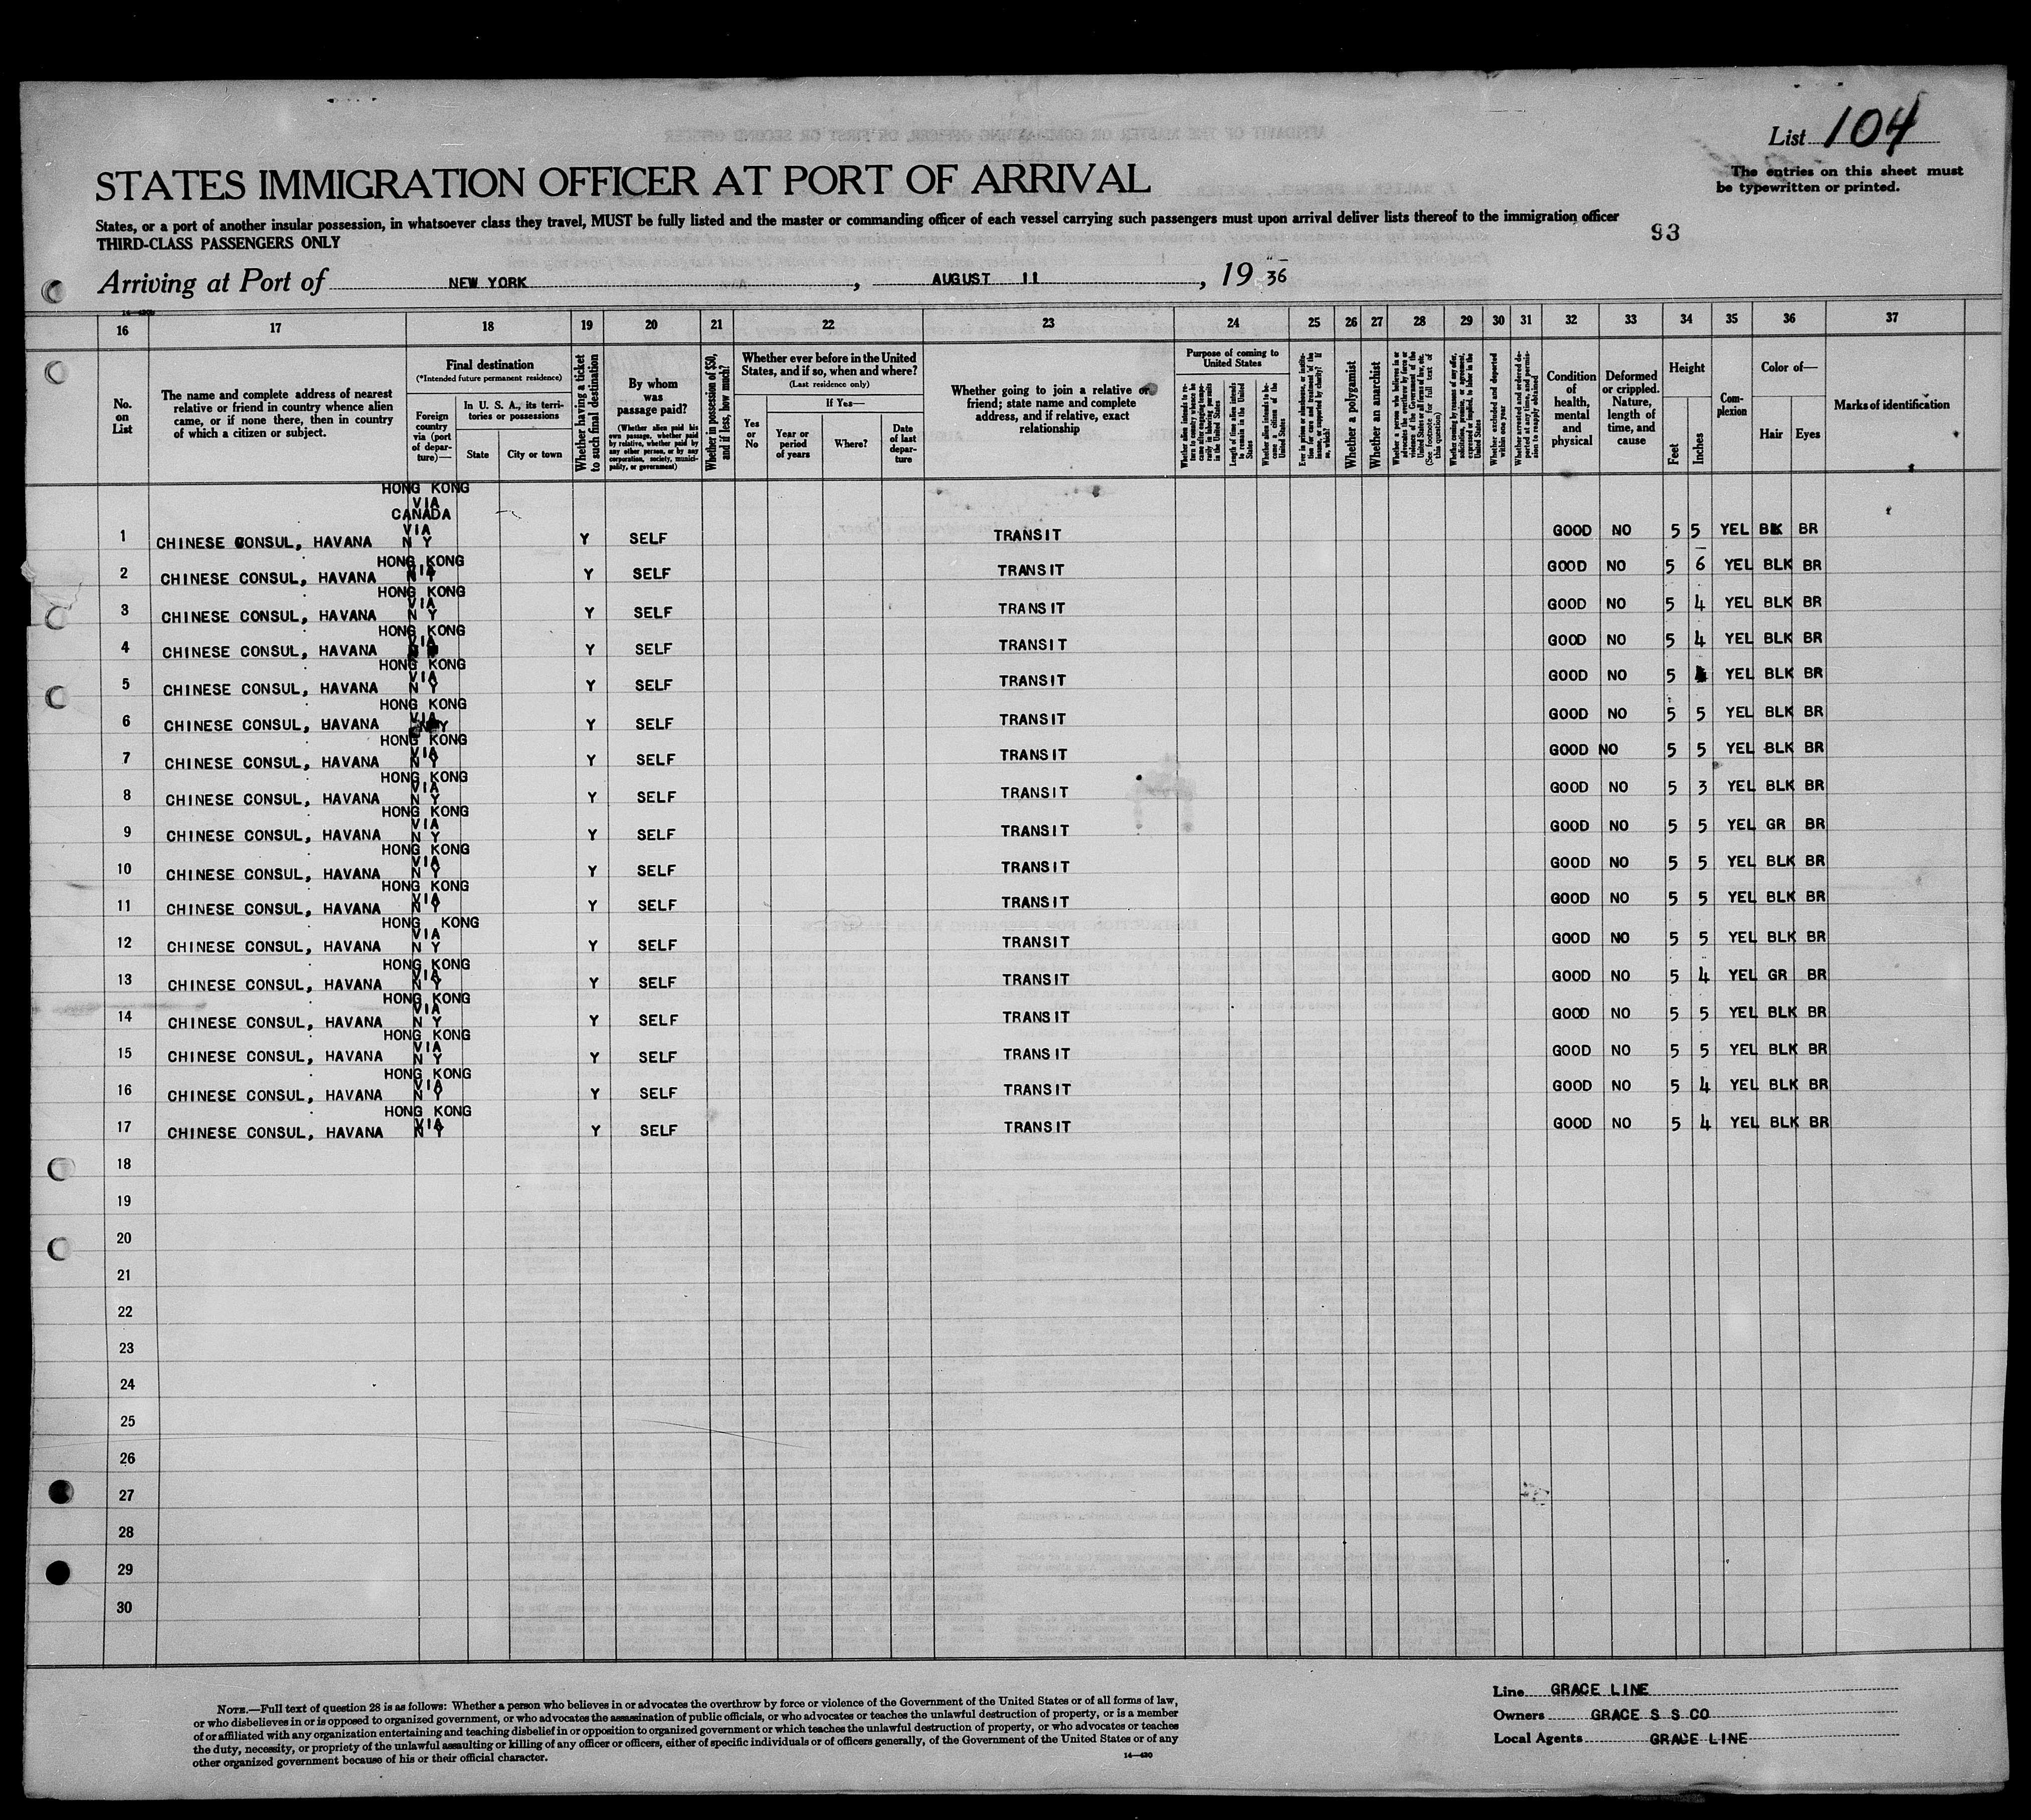 List 104
STATES IMMIGRATION OFFICER AT PORT OF ARRIVAL
The entries on this sheet must
be typewritten or printed.
States, or a port of another insular possession, in whatsoever class they travel, MUST be fully listed and the master or commanding officer of each vessel carrying such passengers must upon arrival deliver lists thereof to the immigration officer
THIRD-CLASS PASSENGERS ONLY
93
Arriving at Port of NEW YORK, AUGUST 11, 1936
16 17 18 19 20 21 22 23 24 25 26 27 28 29 30 31 32 33 34 35 36 37
No. on List
The name and complete address of nearest relative or friend in country whence alien came, or if none there, then in country of which a citizen or subject.
Final destination
(*Intended future permanent residence)
Foreign country via (port of departure)—
In U. S. A., its territories or possessions
State
City or town
Whether having a ticket to such final destination
By whom was passage paid?
(Whether alien paid his own passage, whether paid by relative, whether paid by any other person, or by any corporation, society, municipality, or government)
Whether in possession of $50, and if less, how much?
Whether ever before in the United States, and if so, when and where?
(Last residence only)
Yes or No
If Yes—
Year or period of years
Where?
Date of last departure
Whether going to join a relative or friend; state name and complete address, and if relative, exact relationship
Purpose of coming to United States
Whether alien intends to return to country whence he came after engaging temporarily in laboring pursuits in the United States
Length of time alien intends to remain in the United States
Whether alien intends to become a citizen of the United States
Ever in prison or almshouse, or institution for care and treatment of the insane, or supported by charity? If so, which?
Whether a polygamist
Whether an anarchist
Whether a person who believes in or advocates the overthrow by force or violence of the Government of the United States or all forms of law, etc. (See footnote for full text of this question)
Whether coming by reason of any offer, solicitation, promise, or agreement, express or implied, to labor in the United States
Whether excluded and deported within one year
Whether arrested and ordered deported at any time, and permission to reapply obtained
Condition of health, mental and physical
Deformed or crippled. Nature, length of time, and cause
Height
Feet
Inches
Complexion
Color of—
Hair
Eyes
Marks of identification
HONG KONG
VIA
CANADA
VIA
1 CHINESE CONSUL, HAVANA N Y Y SELF TRANSIT GOOD NO 5 5 YEL BLK BR
HONG KONG
VIA
2 CHINESE CONSUL, HAVANA N Y Y SELF TRANSIT GOOD NO 5 6 YEL BLK BR
HONG KONG
VIA
3 CHINESE CONSUL, HAVANA N Y Y SELF TRANSIT GOOD NO 5 4 YEL BLK BR
HONG KONG
VIA
4 CHINESE CONSUL, HAVANA Y SELF TRANSIT GOOD NO 5 4 YEL BLK BR
HONG KONG
VIA
5 CHINESE CONSUL, HAVANA N Y Y SELF TRANSIT GOOD NO 5 YEL BLK BR
HONG KONG
VIA
6 CHINESE CONSUL, HAVANA N Y Y SELF TRANSIT GOOD NO 5 5 YEL BLK BR
HONG KONG
VIA
7 CHINESE CONSUL, HAVANA N Y Y SELF TRANSIT GOOD NO 5 5 YEL BLK BR
HONG KONG
VIA
8 CHINESE CONSUL, HAVANA N Y Y SELF TRANSIT GOOD NO 5 3 YEL BLK BR
HONG KONG
VIA
9 CHINESE CONSUL, HAVANA N Y Y SELF TRANSIT GOOD NO 5 5 YEL GR BR
HONG KONG
VIA
10 CHINESE CONSUL, HAVANA N Y Y SELF TRANSIT GOOD NO 5 5 YEL BLK BR
HONG KONG
VIA
11 CHINESE CONSUL, HAVANA N Y Y SELF TRANSIT GOOD NO 5 5 YEL BLK BR
HONG KONG
VIA
12 CHINESE CONSUL, HAVANA N Y Y SELF TRANSIT GOOD NO 5 5 YEL BLK BR
HONG KONG
VIA
13 CHINESE CONSUL, HAVANA N Y Y SELF TRANSIT GOOD NO 5 4 YEL GR BR
HONG KONG
VIA
14 CHINESE CONSUL, HAVANA N Y Y SELF TRANSIT GOOD NO 5 5 YEL BLK BR
HONG KONG
VIA
15 CHINESE CONSUL, HAVANA N Y Y SELF TRANSIT GOOD NO 5 5 YEL BLK BR
HONG KONG
VIA
16 CHINESE CONSUL, HAVANA N Y Y SELF TRANSIT GOOD NO 5 4 YEL BLK BR
HONG KONG
VIA
17 CHINESE CONSUL, HAVANA N Y Y SELF TRANSIT GOOD NO 5 4 YEL BLK BR
18
19
20
21
22
23
24
25
26
27
28
29
30
NOTE.—Full text of question 28 is as follows: Whether a person who believes in or advocates the overthrow by force or violence of the Government of the United States or of all forms of law,
or who disbelieves in or is opposed to organized government, or who advocates the assassination of public officials, or who advocates or teaches the unlawful destruction of property, or is a member
of or affiliated with any organization entertaining and teaching disbelief in or opposition to organized government or which teaches the unlawful destruction of property, or who advocates or teaches
the duty, necessity, or propriety of the unlawful assaulting or killing of any officer or officers, either of specific individuals or of officers generally, of the Government of the United States or of any
other organized government because of his or their official character.
14—430
Line GRACE LINE
Owners GRACE S S CO
Local Agents GRACE LINE